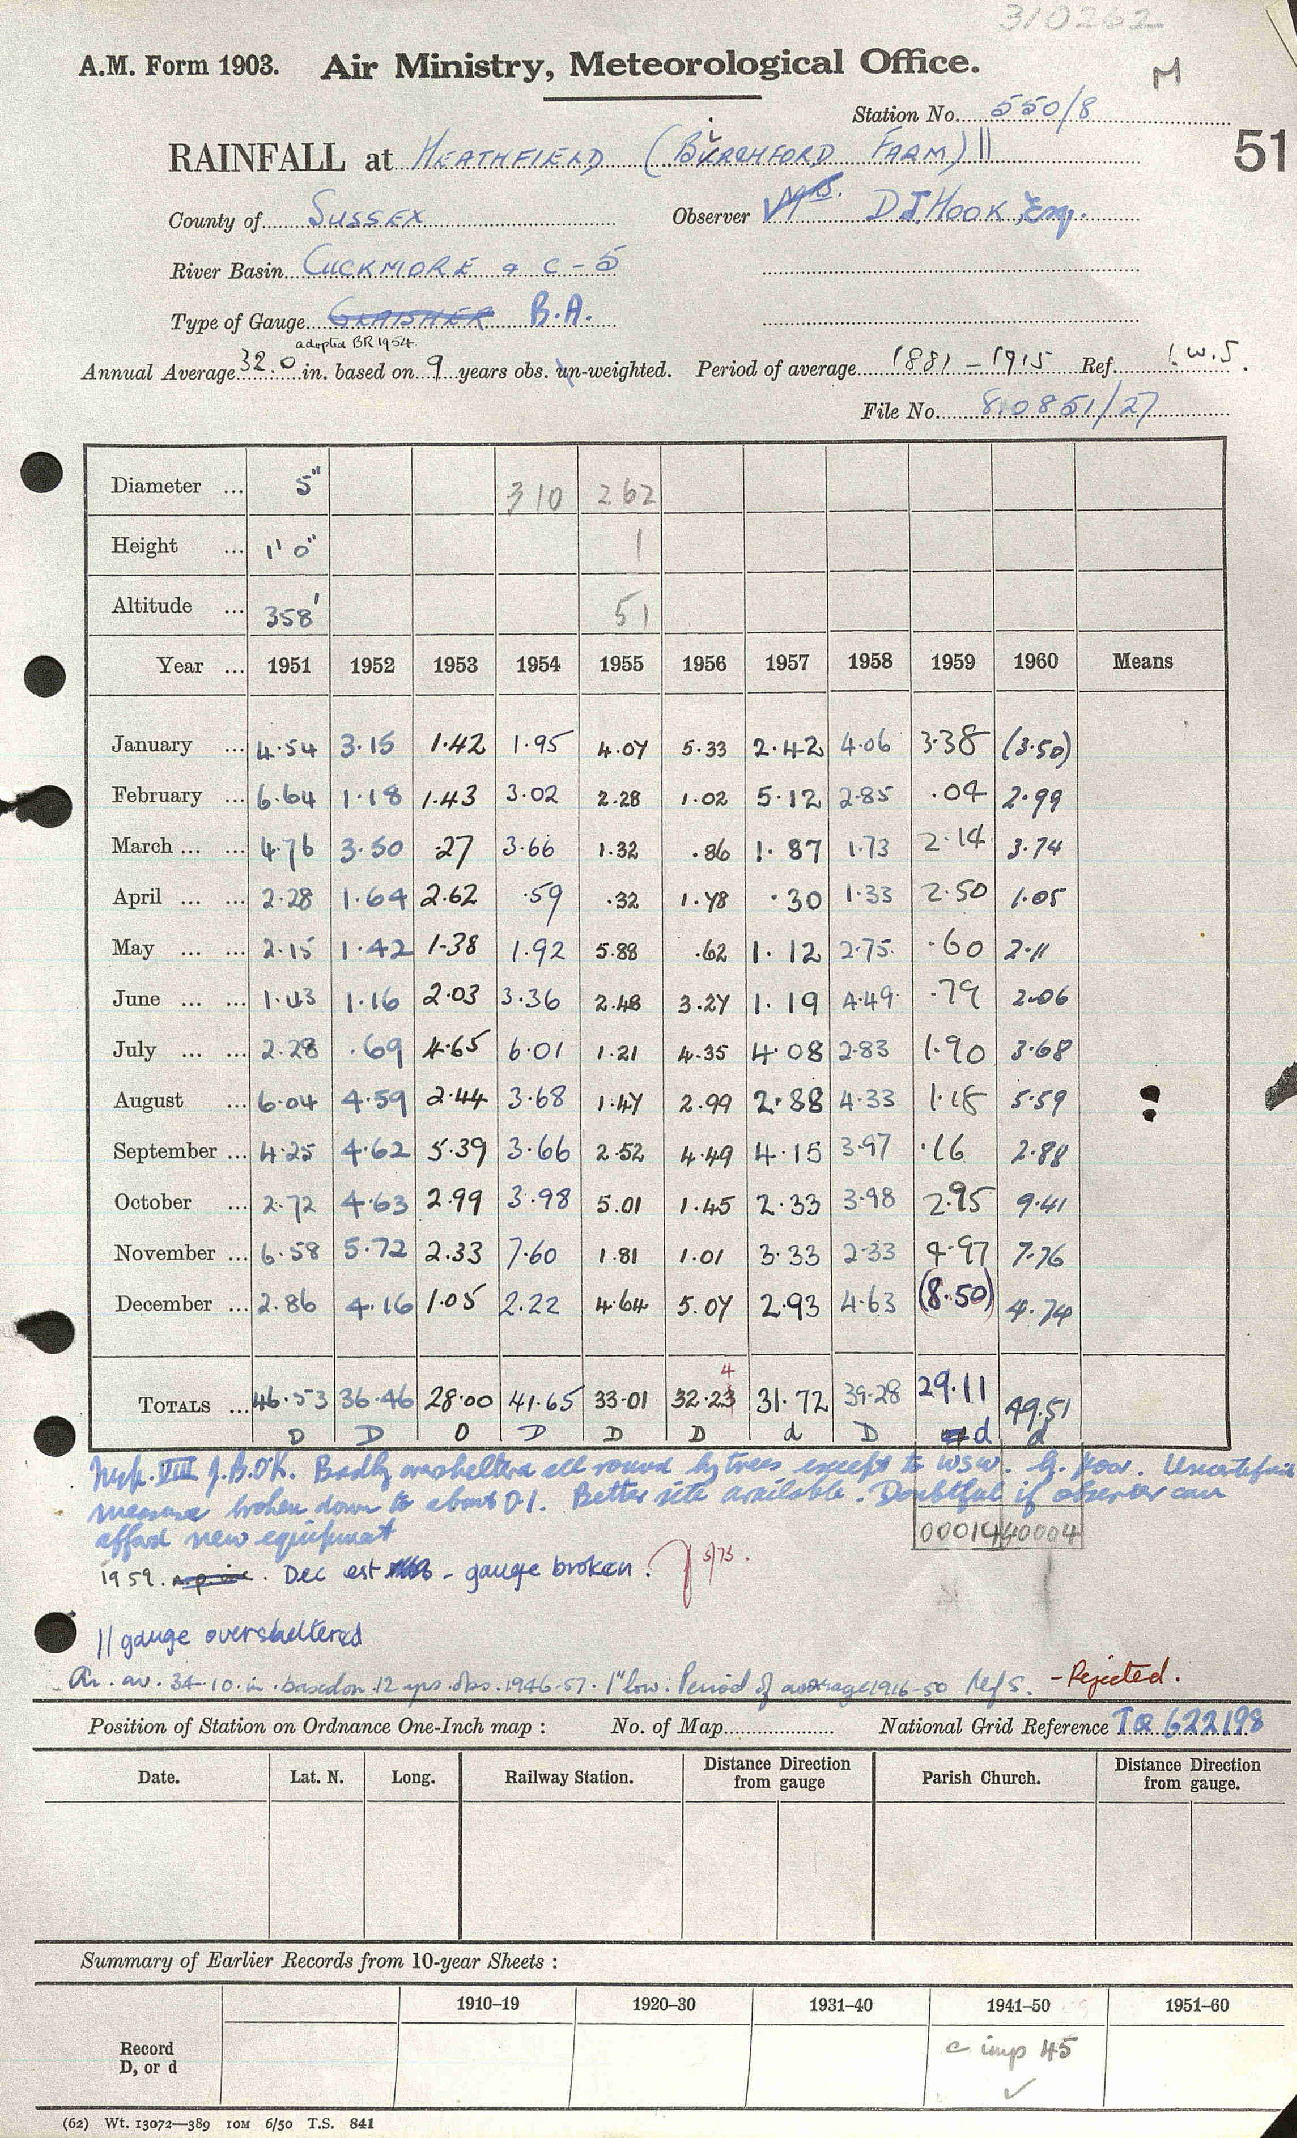 310262
A.M. Form 1903. Air Ministry, Meteorological Office. M
Station No. 550/8
51
RAINFALL at HEATHFIELD (BIRCHFORD FARM) ||
County of SUSSEX Observer Mrs. D J. HOOK, Esq.
River Basin CUCKMORE & C-5
Type of Gauge GLAISHER B.A.
adopted BR 1954.
Annual Average 32.0 in. based on 9 years obs. un-weighted. Period of average 1881-1915 Ref. l.w.5.
File No. 810851/27
Diameter ... 5" 310 262
Height ... 1' 0" 1
Altitude ... 358' 51
Year ... 1951 1952 1953 1954 1955 1956 1957 1958 1959 1960 Means
January ... 4.54 3.15 1.42 1.95 4.07 5.33 2.42 4.06 3.38 (3.50)
February ... 6.64 1.18 1.43 3.02 2.28 1.02 5.12 2.85 .04 2.99
March ... ... 4.76 3.50 .27 3.66 1.32 .86 1.87 1.73 2.14 3.74
April ... ... 2.28 1.64 2.62 .59 .32 1.78 .30 1.33 2.50 1.05
May ... ... 2.15 1.42 1.38 1.92 5.88 .62 1.12 2.75 .60 2.11
June ... ... 1.43 1.16 2.03 3.36 2.48 3.27 1.19 4.49 .79 2.06
July ... ... 2.28 .69 4.65 6.01 1.21 4.35 4.08 2.83 1.90 3.68
August ... 6.04 4.59 2.44 3.68 1.47 2.99 2.88 4.33 1.18 5.59
September ... 4.25 4.62 5.39 3.66 2.52 4.49 4.15 3.97 .16 2.88
October ... 2.72 4.63 2.99 3.98 5.01 1.45 2.33 3.98 2.95 9.41
November ... 6.58 5.72 2.33 7.60 1.81 1.01 3.33 2.33 4.97 7.76
December ... 2.86 4.16 1.05 2.22 4.64 5.07 2.93 4.63 (8.50) 4.74
4
TOTALS ... 46.53 36.46 28.00 41.65 33.01 32.23 31.72 39.28 29.11 49.51
D D D D D D d D d d
Insp. VIII J.B.OK. Badly oversheltered all round by trees except to WSW. G. poor. Uncertified
measure broken down to about 0.1. Better site available. Doubtful if observer can
afford new equipment
00019440004
1959. Dec est - gauge broken. 5/73.
|| gauge oversheltered
An. av. 34.10 in. based on 12 yrs obs. 1946-57. 1" low. Period of average 1916-50 Ref 5. - Rejected.
Position of Station on Ordnance One-Inch map : No. of Map National Grid Reference TQ 622198
Date. Lat. N. Long. Railway Station. Distance Direction from gauge Parish Church. Distance Direction from gauge.
Summary of Earlier Records from 10-year Sheets :
1910–19 1920–30 1931–40 1941–50 1951–60
Record
D, or d
c imp 45
✓
(62) Wt. 13072—389 10M 6/50 T.S. 841